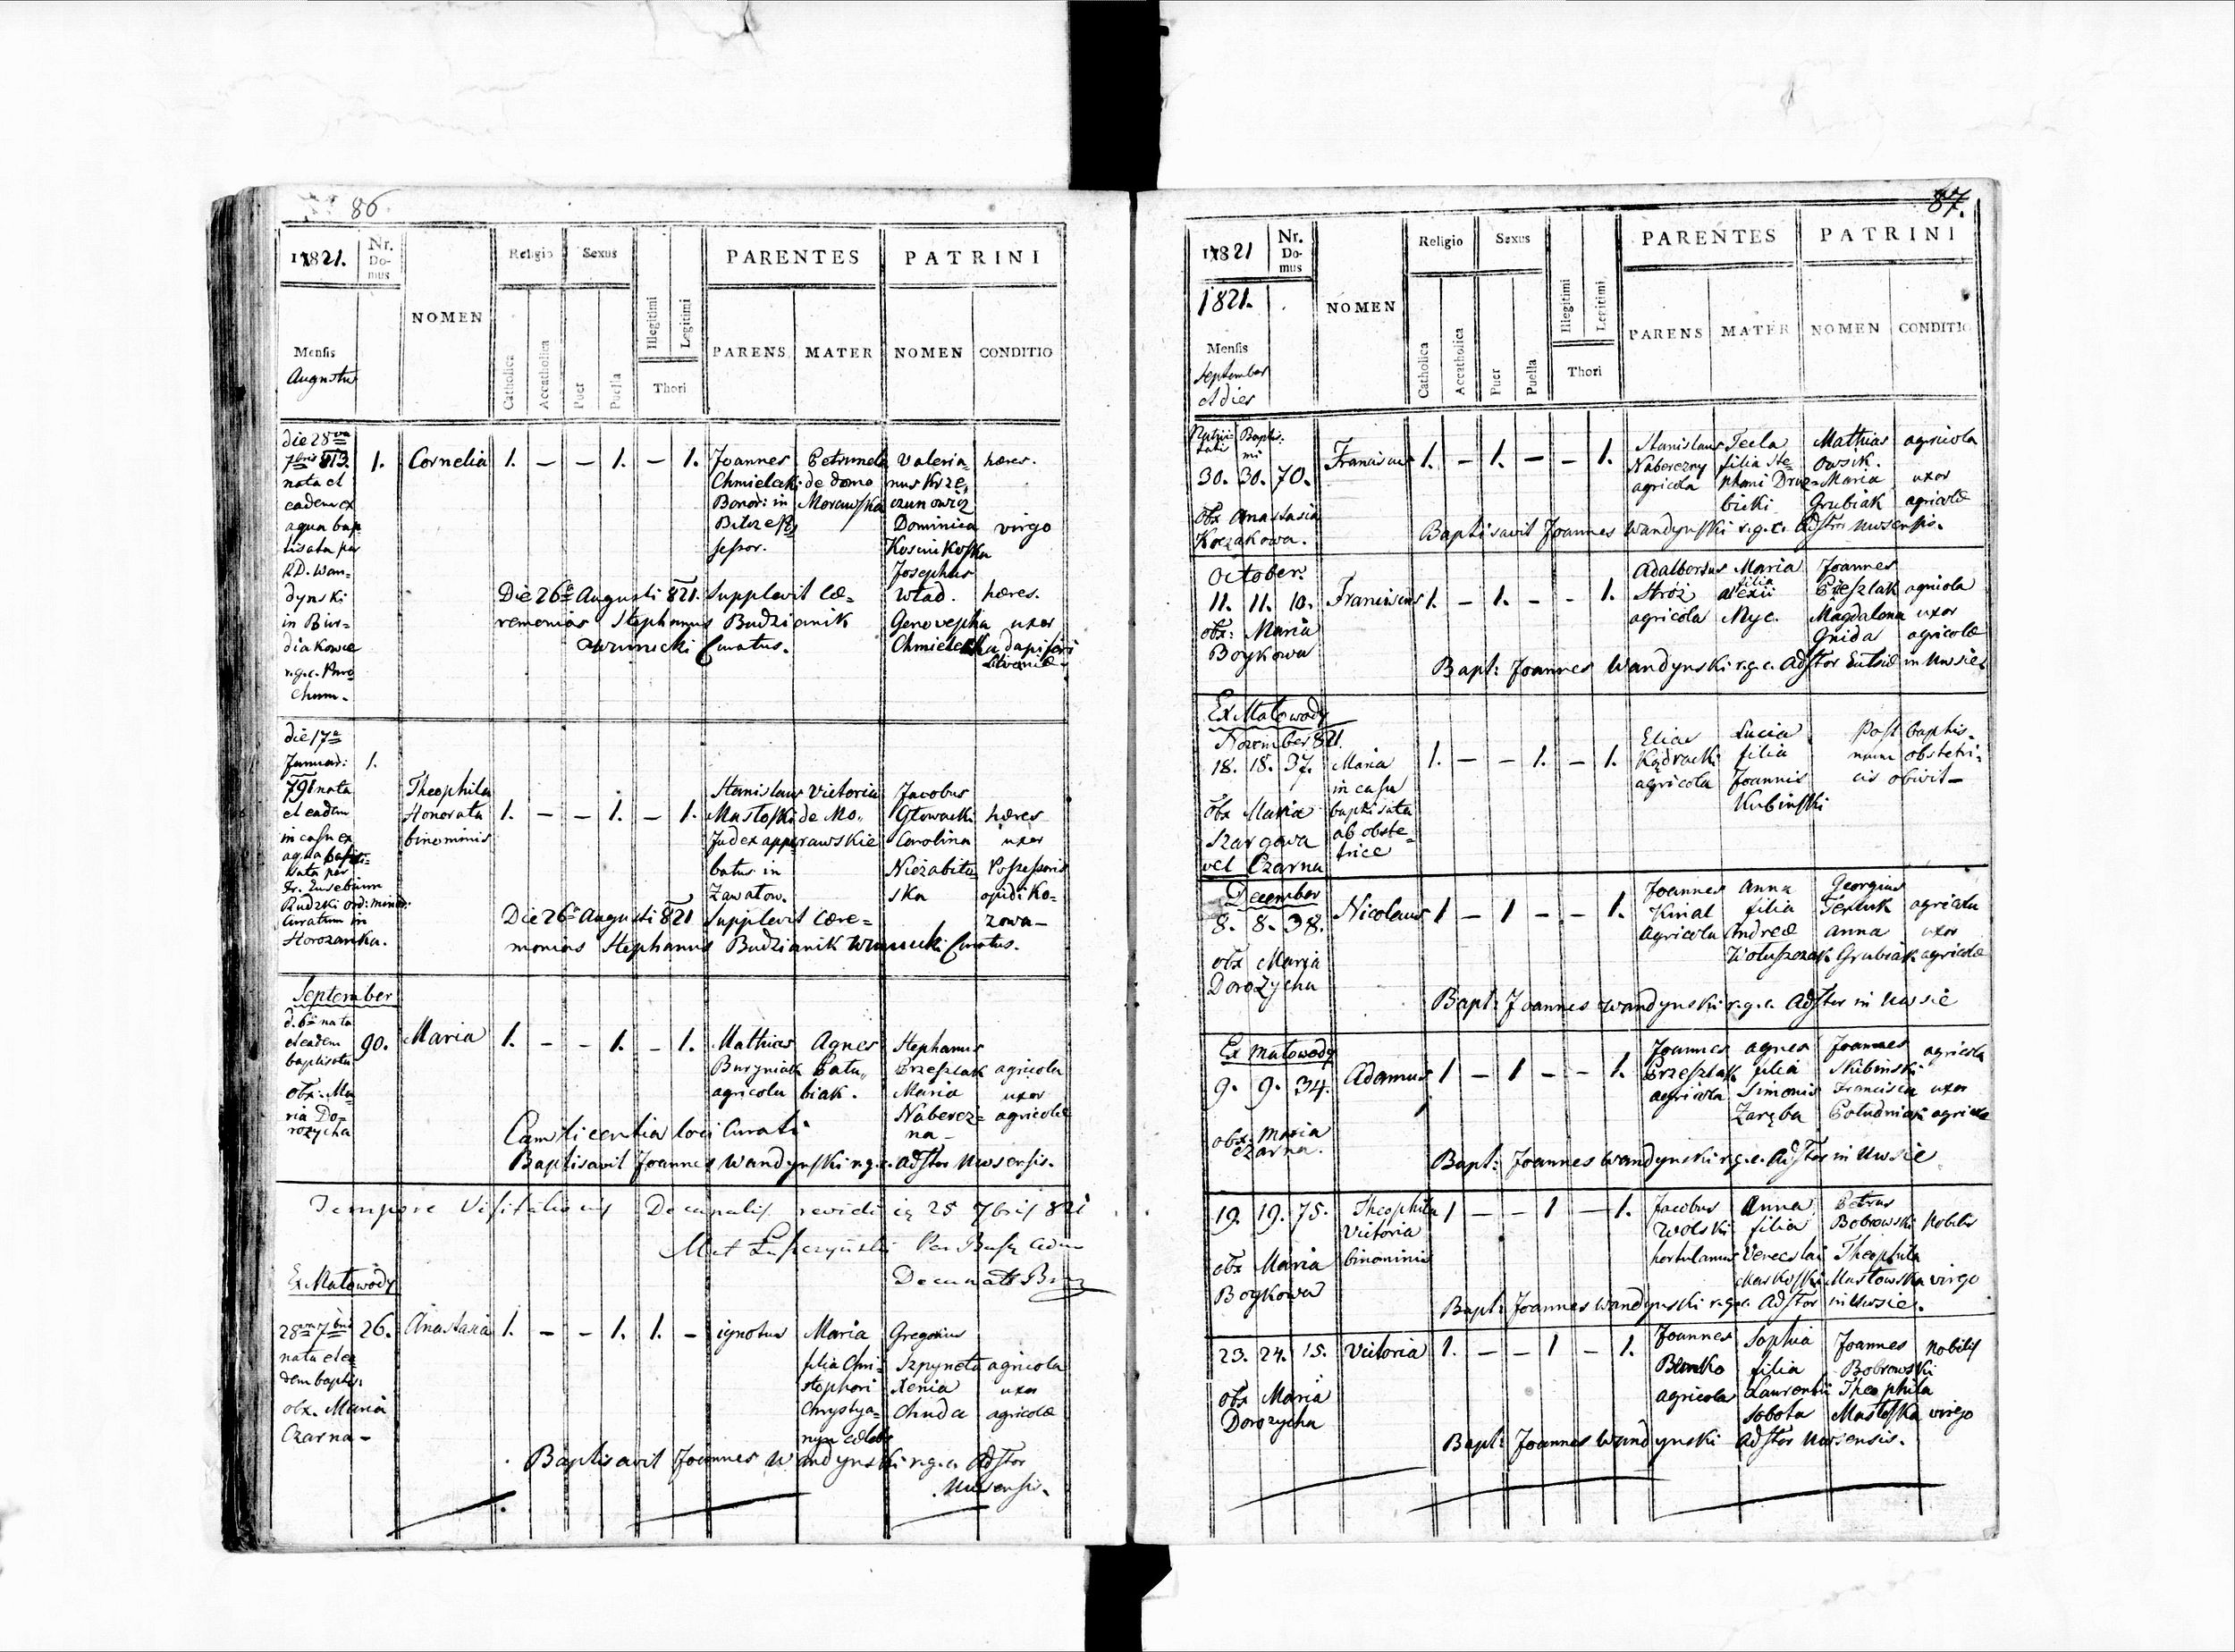 86
1821.
Nr. Domus
NOMEN
Religio
Sexus
PARENTES
PATRINI
Mensis
Augustus
Catholica
Accatholica
Puer
Puella
Illegitimi
Legitimi
Thori
PARENS
MATER
NOMEN
CONDITIO
die 28va
7bris 813.
nata et
eadem ex
aqua bap
tisata per
RD. Wan=
dynski
in Bur=
diakowce
r.g.c. Paro
chum.
1.
Cornelia
1. – – 1. – 1.
Joannes
Chmielecki
Bonor: in
sessor.
Petrunela
de domo
Morawska
Valeria=
nus Krze,
czunowicz
Dominica
Kosmikoska
Josephus
Wład.
Genovepha
Chmielecka
hæres.
virgo
hæres.
uxor
dapiferi
Die 26a Augusti 821. Supplevit Cæ=
remonias Stephanus Budzianik
Winnicki Curatus.
die 17a
Januar:
791 nata
et eadem
in casu ex
aqua bapti=
sata per
Fr. Eusebium
Rudzki Ord: minor:
Curatum in
Horozanka.
1.
Theophila
Honorata
binominis
1. – – 1. – 1.
Stanislaus
Mastoski
Judex appro
batus in
Zawatow.
Victoria
de Mo,,
rawskie
Jacobus
Głowacki
Carolina
Niezabito
ska
hæres
uxor
Possessoris
opidi Ko=
zowa –
Die 26a Augusti 821 Supplevit Cære=
monias Stephanus Budzianik Winnicki Curatus.
September
d. 6a nata
et eadem
baptisata
obx. Ma
ria Do=
rozycha
90.
Maria
1. – – 1. – 1.
Mathias
Buryniak
agricola
Agnes
Batu,,
biak.
Stephanus
Brzeszlak
Maria
Naberez=
na –
agricola
uxor
agricolæ
Cum licentia loci Curati
Baptisavit Joannes Wandynski r.g.c. Adstor Uwsensis.
Tempore Visitationis Decanalis revidi 25 7bris 821
Ex Małowody
28va 7bris
nata et ea
dem baptis:
obx. Maria
Czarna –
26.
Anastasia
1. – – 1. 1. –
ignotus
Maria
filia Chri=
stophori
Chrystya=
nyn
Gregorius
Szpyneta
Xenia
Chuda
agricola
uxor
agricolæ
Baptisavit Joannes Wandynski r.g.c. Adstor
Uwsensis.
87.
1821
Nr. Domus
NOMEN
Religio
Sexus
PARENTES
PATRINI
1821.
Mensis
September
et dies
Catholica
Accatholica
Puer
Puella
Illegitimi
Legitimi
Thori
PARENS
MATER
NOMEN
CONDITIO
Nativi=
tatis
Baptis=
mi
30. 30. 70.
obx Anastasia
Kozakowa.
Franciscus
1. – 1. – – 1.
Stanislaus
Naberezny
agricola
Tecla
filia Ste=
phani Druz=
bicki
Mathias
Owsik.
Maria
Grubiak
agricola
uxor
agricolæ
Baptisavit Joannes Wandynski r.g.c. Adstor Uwsensis.
October.
11. 11. 10.
obx: Maria
Boykowa
Franciscus
1. – 1. – – 1.
Adalbertus
Stróz
agricola
Maria
filia
Alexii
Myc.
Joannes
Brzeszlak
Magdalena
Gnida
agricola
uxor
agricolæ
Bapt: Joannes Wandynski r.g.c. Adstor Ecclsiæ in Uwsie.
Ex Małowody
November 821.
18. 18. 37.
obx Maria
Szargowa
vel Czarna
Maria
in casu
baptisata
ab obste=
trice
1. – – 1. – 1.
Elias
Kądracki
agricola
Lucia
filia
Joannis
Kubinski
Post baptis=
mum obstetri=
cis obivit –
December
8. 8. 38.
obx Maria
Dorożycha
Nicolaus
1 – 1 – – 1.
Joannes
Kinal
agricola
Anna
filia
Andreæ
Georgius
Terluk
Anna
Grubiak
agricola
uxor
agricolæ
Bapt: Joannes Wandynski r.g.c. Adstor in Uwsie
Ex Małowody
9. 9. 34.
obx: Maria
Czarna.
Adamus
1 – 1 – – 1.
Joannes
Brzeszlak
agricola
Agnes
filia
Simonis
Zaręba
Joannes
Skibinski
Francisca
Południak
agricola
uxor
agricolæ
Bapt: Joannes Wandynski r.g.c. Adstor in Uwsie
19. 19. 75.
obx Maria
Boykowa
Theophila
Victoria
binominis
1 – – 1 – 1.
Jacobus
Wolski
hortulanus
Anna
filia
Venceslai
Maskoski
Petrus
Bobrowski
Theophila
Mastowska
Nobilis
virgo
Bapt: Joannes Wandynski r.g.c. Adstor in Uwsie.
23. 24. 15.
obx Maria
Dorozycha
Victoria
1. – – 1 – 1.
Joannes
Bemko
agricola
Sophia
filia
Laurentii
Sobota
Joannes
Bobrowski
Theophila
Mastoska
Nobilis
virgo
Bapt: Joannes Wandynski Adstor Uwsensis.